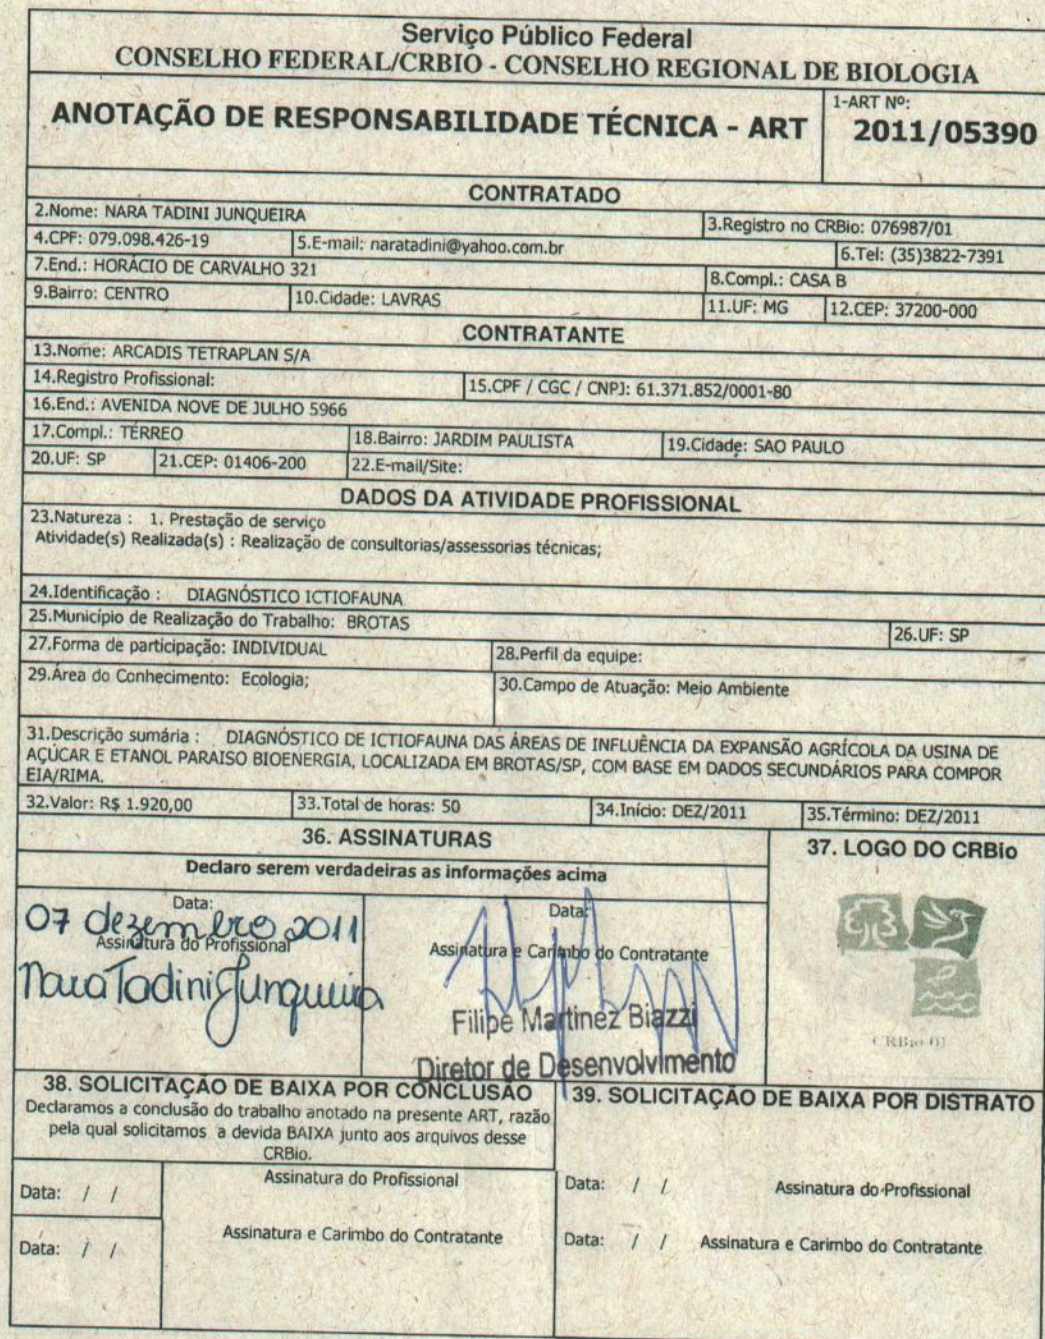 Serviço Público Federal
CONSELHO FEDERAL/CRBIO - CONSELHO REGIONAL DE BIOLOGIA
ANOTAÇÃO DE RESPONSABILIDADE TÉCNICA - ART
1-ART Nº:
2011/05390
CONTRATADO
2.Nome: NARA TADINI JUNQUEIRA
3.Registro no CRBio: 076987/01
4.CPF: 079.098.426-19
5.E-mail: naratadini@yahoo.com.br
6.Tel: (35)3822-7391
7.End.: HORÁCIO DE CARVALHO 321
8.Compl.: CASA B
9.Bairro: CENTRO
10.Cidade: LAVRAS
11.UF: MG
12.CEP: 37200-000
CONTRATANTE
13.Nome: ARCADIS TETRAPLAN S/A
14.Registro Profissional:
15.CPF / CGC / CNPJ: 61.371.852/0001-80
16.End.: AVENIDA NOVE DE JULHO 5966
17.Compl.: TÉRREO
18.Bairro: JARDIM PAULISTA
19.Cidade: SAO PAULO
20.UF: SP
21.CEP: 01406-200
22.E-mail/Site:
DADOS DA ATIVIDADE PROFISSIONAL
23.Natureza : 1. Prestação de serviço
Atividade(s) Realizada(s) : Realização de consultorias/assessorias técnicas;
24.Identificação : DIAGNÓSTICO ICTIOFAUNA
25.Município de Realização do Trabalho: BROTAS
26.UF: SP
27.Forma de participação: INDIVIDUAL
28.Perfil da equipe:
29.Área do Conhecimento: Ecologia;
30.Campo de Atuação: Meio Ambiente
31.Descrição sumária : DIAGNÓSTICO DE ICTIOFAUNA DAS ÁREAS DE INFLUÊNCIA DA EXPANSÃO AGRÍCOLA DA USINA DE
AÇÚCAR E ETANOL PARAISO BIOENERGIA, LOCALIZADA EM BROTAS/SP, COM BASE EM DADOS SECUNDÁRIOS PARA COMPOR
EIA/RIMA.
32.Valor: R$ 1.920,00
33.Total de horas: 50
34.Início: DEZ/2011
35.Término: DEZ/2011
36. ASSINATURAS
37. LOGO DO CRBio
Declaro serem verdadeiras as informações acima
Data:
07 dezembro 2011
Assinatura do Profissional
Nara Tadini Junqueira
Data:
Assinatura e Carimbo do Contratante
Filipe Martinez Biazzi
Diretor de Desenvolvimento
CRBio-01
38. SOLICITAÇÃO DE BAIXA POR CONCLUSÃO
Declaramos a conclusão do trabalho anotado na presente ART, razão
pela qual solicitamos a devida BAIXA junto aos arquivos desse
CRBio.
39. SOLICITAÇÃO DE BAIXA POR DISTRATO
Data: / /
Assinatura do Profissional
Data: / /
Assinatura do Profissional
Data: / /
Assinatura e Carimbo do Contratante
Data: / /
Assinatura e Carimbo do Contratante